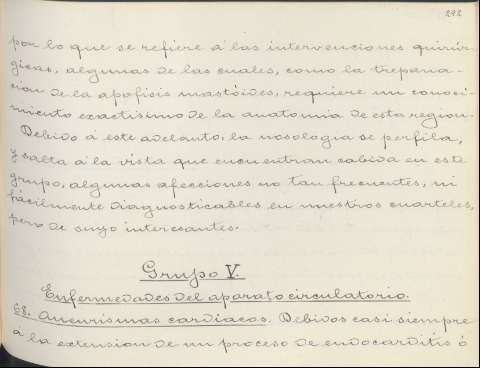 292
por lo que se refiere á las intervenciones quirúr-
gicas, algunas de las cuales, como la trepana-
cion de la apofisis mastóides, requiere un conoci-
miento exactísimo de la anatomia de esta region.
Debido á este adelanto, la nosologia se perfila,
y salta á la vista que encuentran cabida en este
grupo, algunas afecciones no tan frecuentes, ni
fácilmente diagnosticables en nuestros cuarteles,
pero de suyo interesantes.
Grupo V.
Enfermedades del aparato circulatorio.
68. Aneurismas cardiacos. Debidos casi siempre
á la extension de un proceso de endocarditis ó